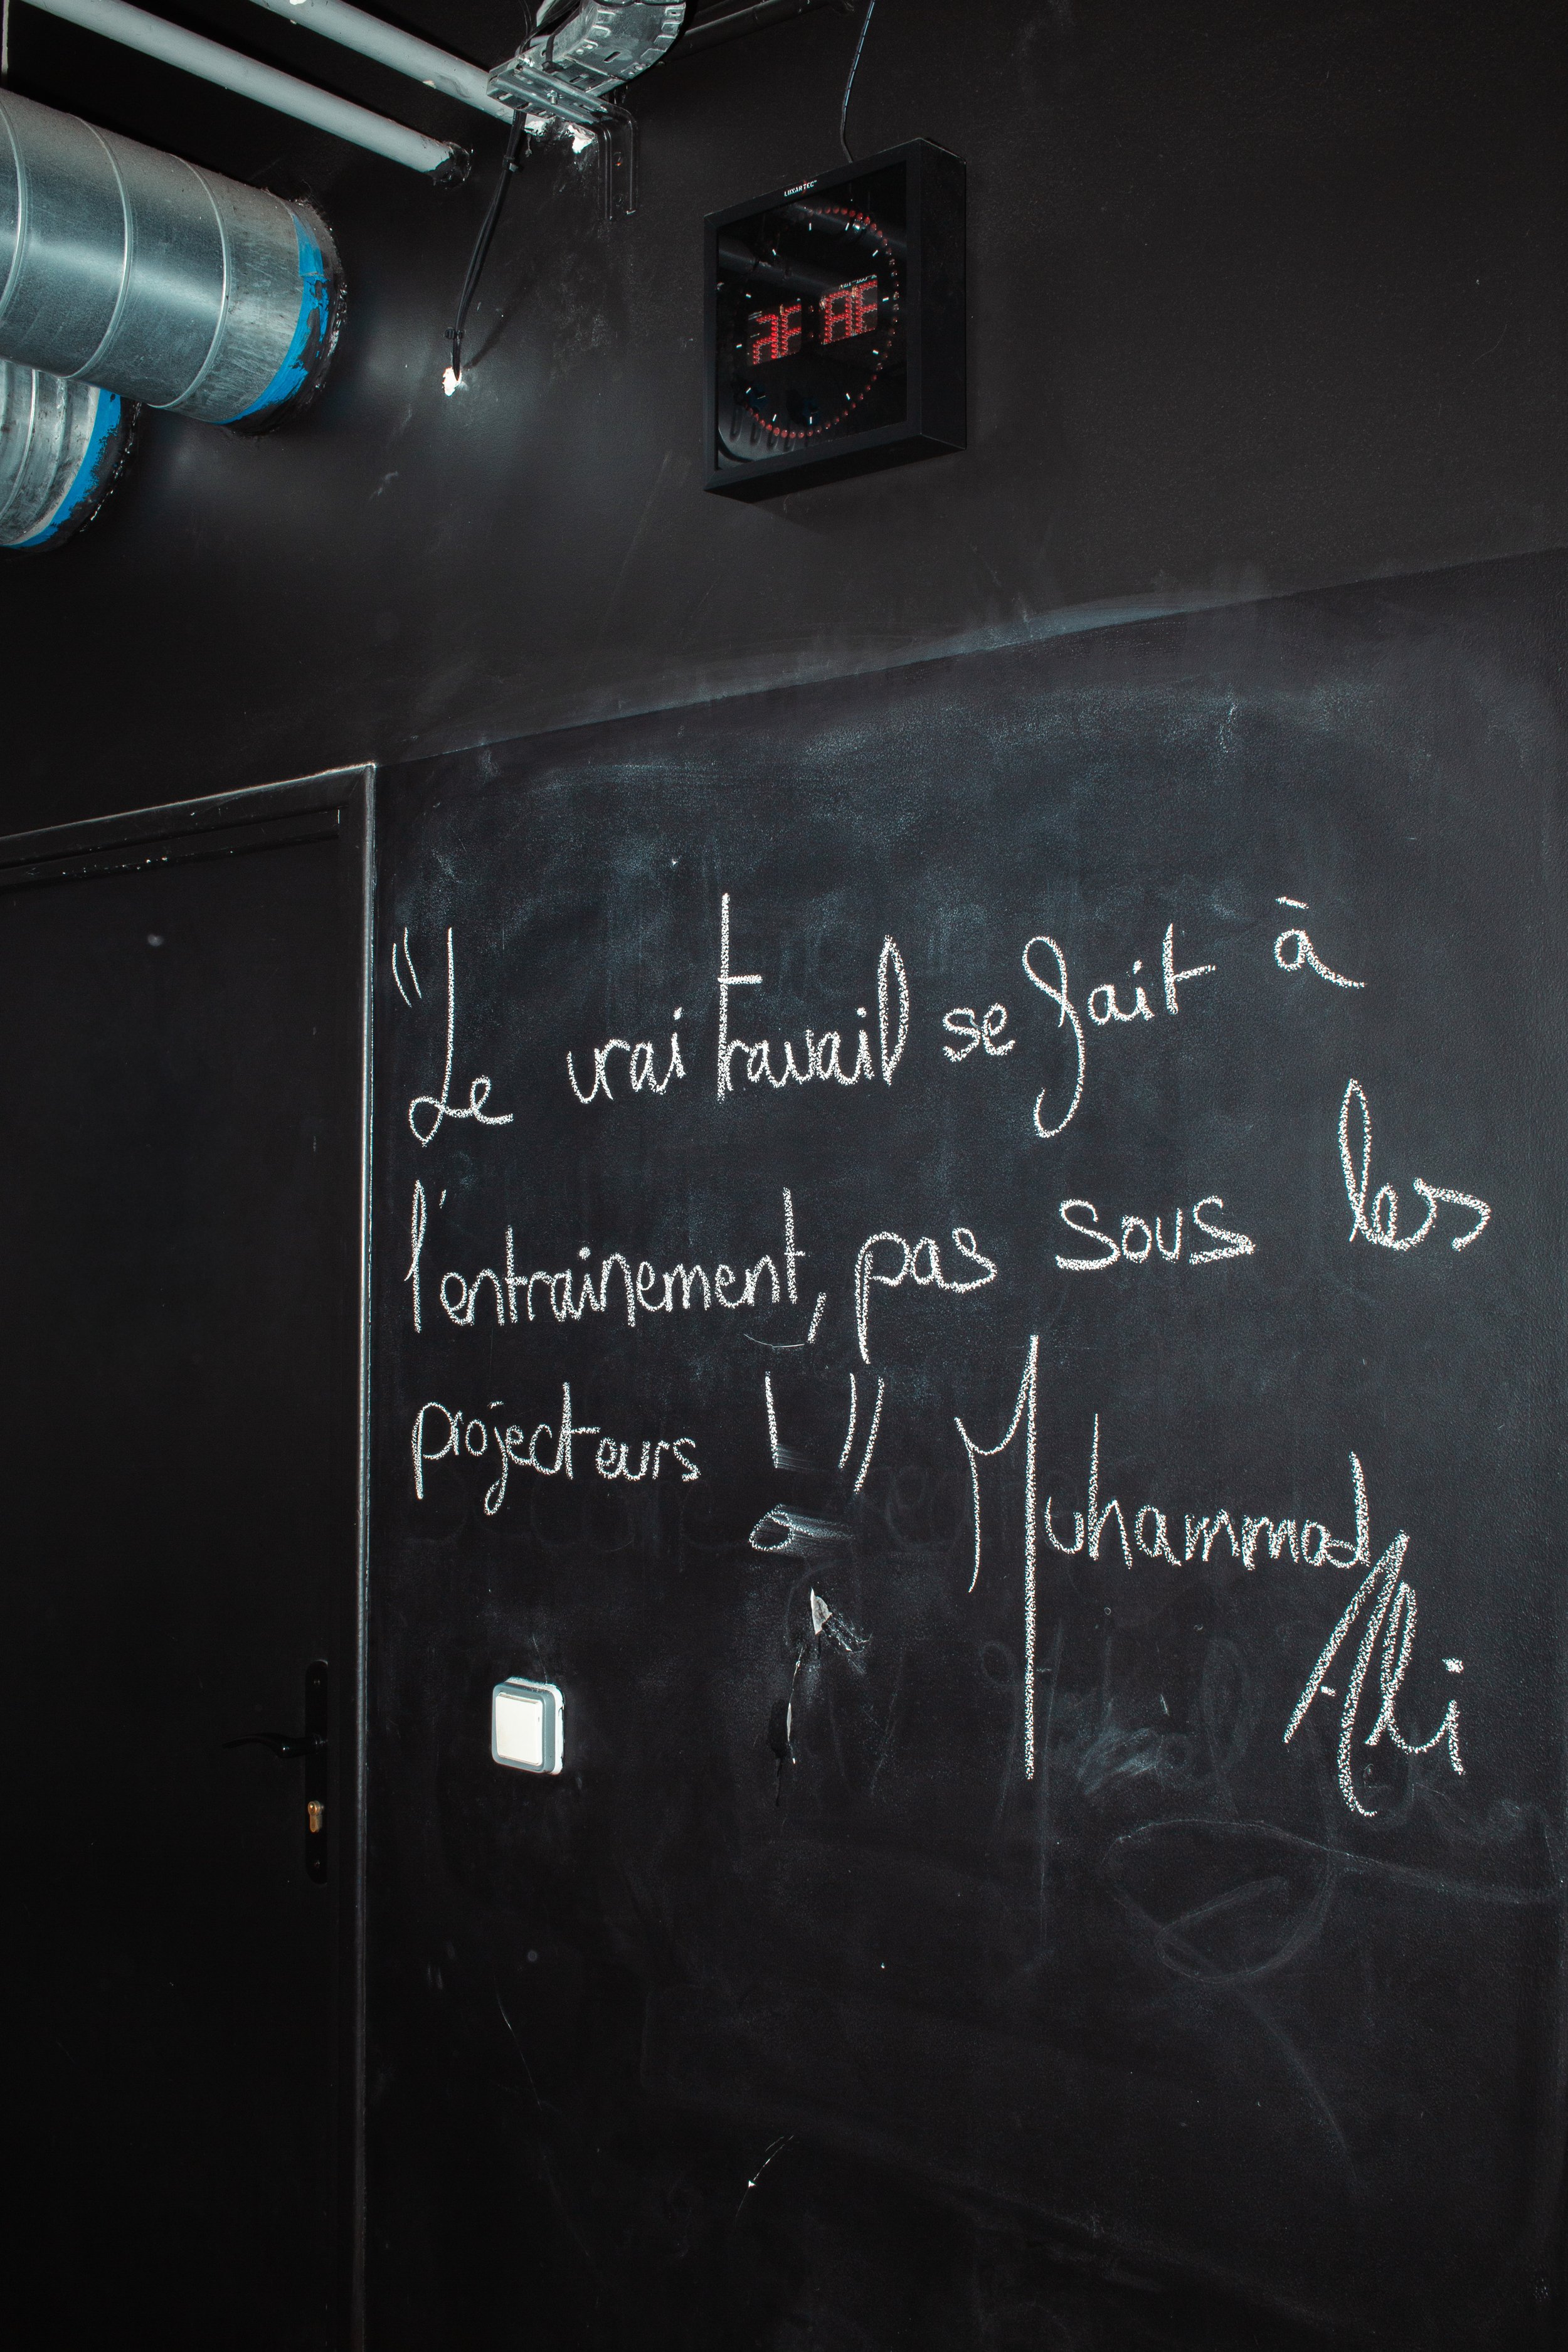 LUXARTEC
"Le vrai travail se fait à
l'entrainement, pas sous les
projecteurs !"
Muhammad
Ali